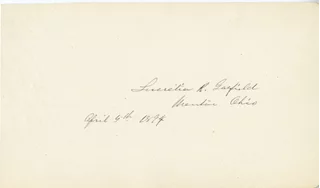 Lucretia R. Garfield
Mentor, Ohio
April 4th